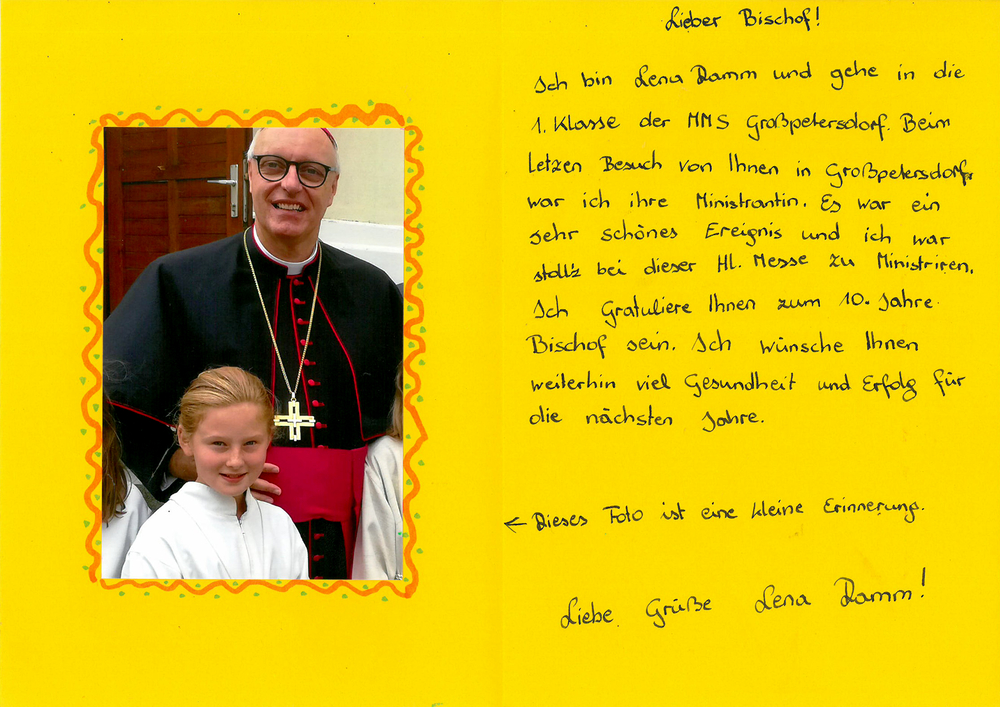 Lieber Bischof!
Ich bin Lena Ramm und gehe in die
1. Klasse der MMS Großpetersdorf. Beim
Letzen Besuch von Ihnen in Großpetersdorf,
war ich ihre Ministrantin. Es war ein
sehr schönes Ereignis und ich war
stollz bei dieser Hl. Messe zu Ministriren.
Ich Gratuliere Ihnen zum 10. Jahre
Bischof sein. Ich wünsche Ihnen
weiterhin viel Gesundheit und Erfolg für
die nächsten Jahre.
← Dieses Foto ist eine kleine Erinnerung.
Liebe Grüße Lena Ramm!